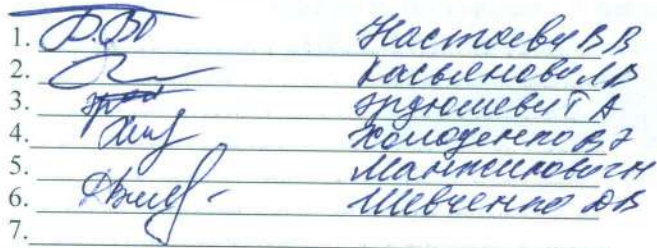 1. Настаеву В В
2. Касьянову Л В
3. Эрдюшеву Т А
4. Холоденко В Э
5. Манжикову Н
6. Шевченко Д В
7.